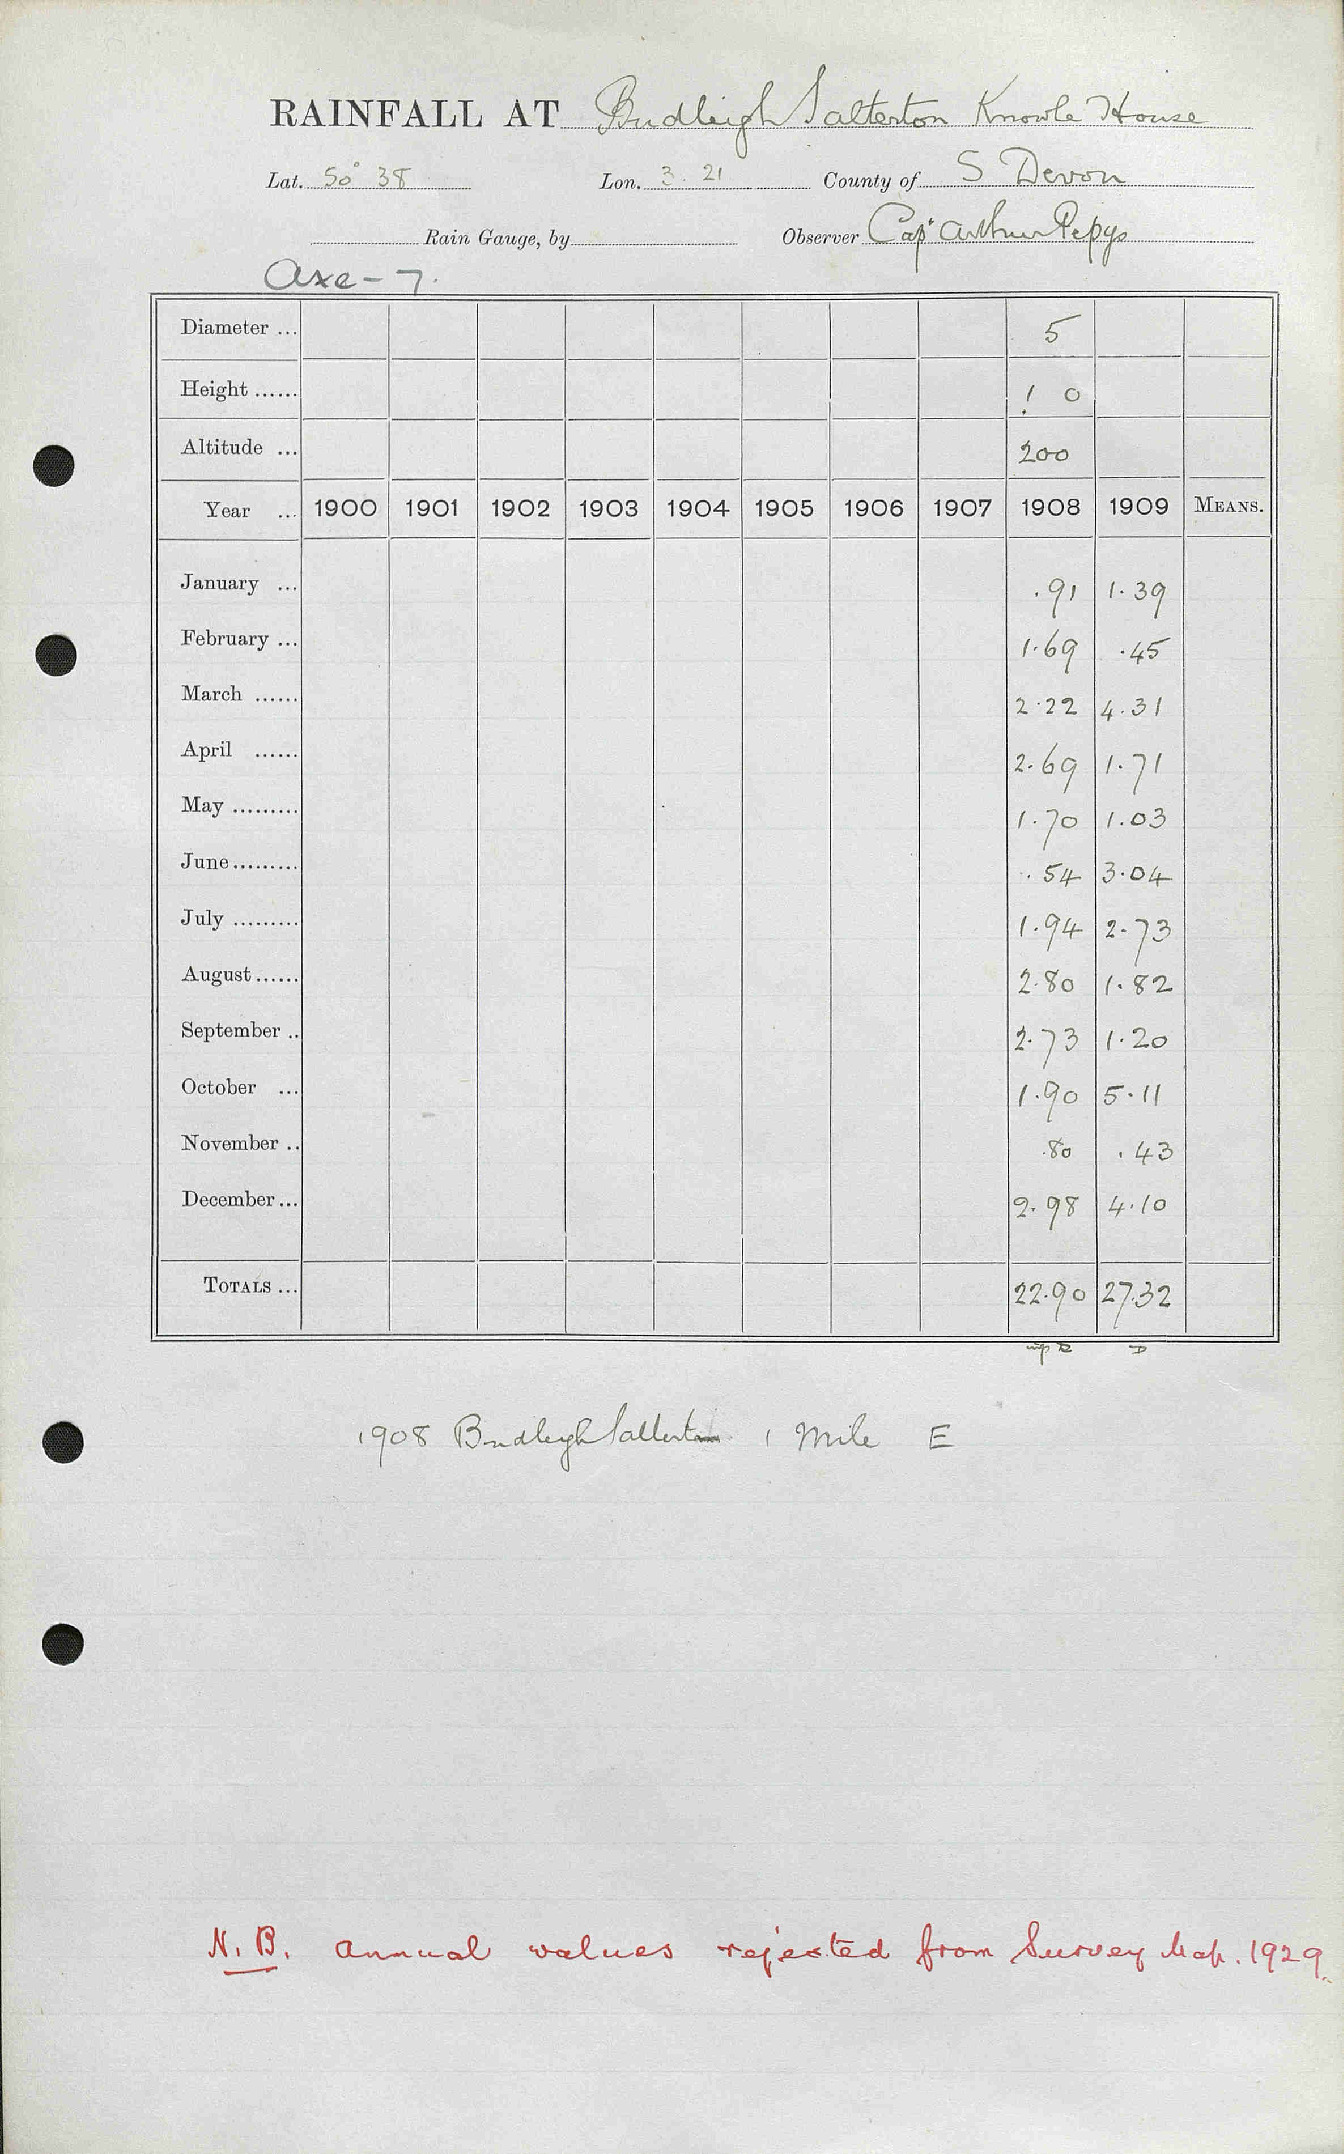 RAINFALL AT Budleigh Salterton Knowle House
Lat. 50° 38 Lon. 3. 21 County of S Devon
Rain Gauge, by Observer Capt Arthur Pepys
Axe - 7.
Diameter ... 5
Height ...... 1 0
Altitude ... 200
Year ... 1900 1901 1902 1903 1904 1905 1906 1907 1908 1909 MEANS.
January ... .91 1.39
February ... 1.69 .45
March ...... 2.22 4.31
April ...... 2.69 1.71
May ......... 1.70 1.03
June ......... .54 3.04
July ......... 1.94 2.73
August ...... 2.80 1.82
September .. 2.73 1.20
October ... 1.90 5.11
November .. .80 .43
December ... 2.98 4.10
TOTALS ... 22.90 27.32
D
1908 Budleigh Salterton 1 Mile E
N.B. Annual values rejected from Survey Map. 1929.